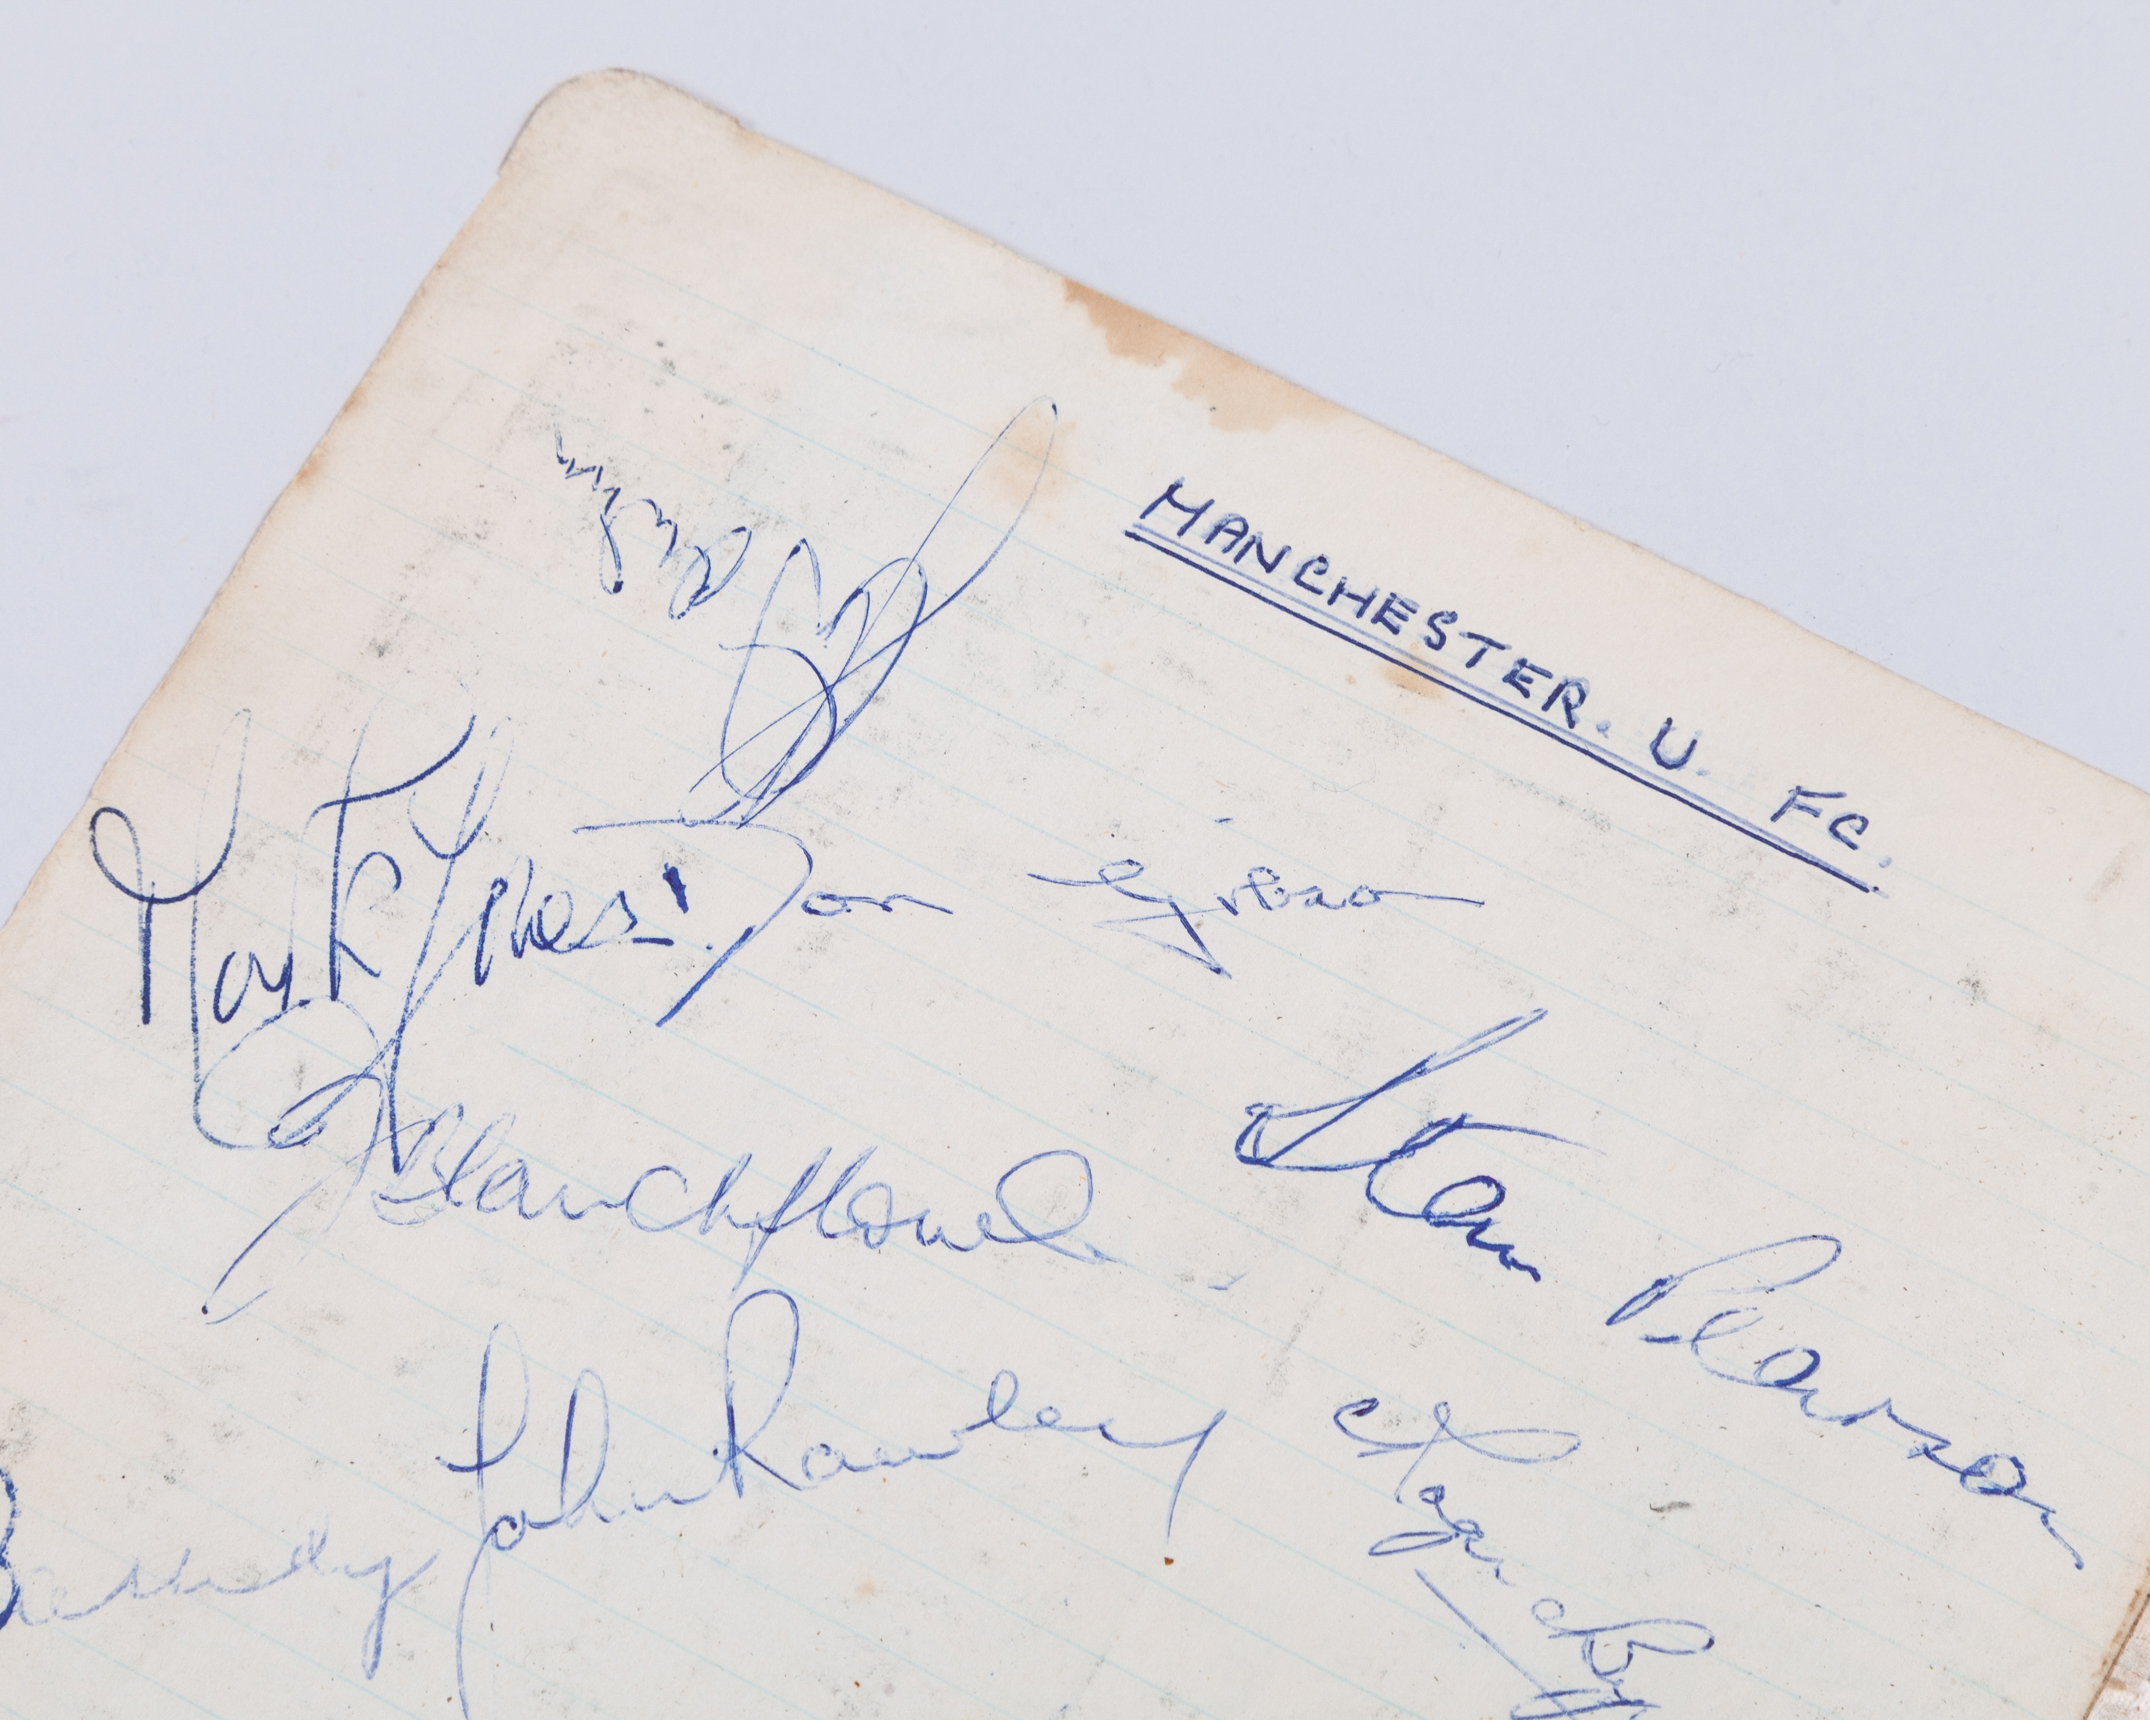 MANCHESTER. U. FC.
Mark Jones
Don Gibson
Blanchflower
Stan Pearson
John Rowley
Roger Byrne